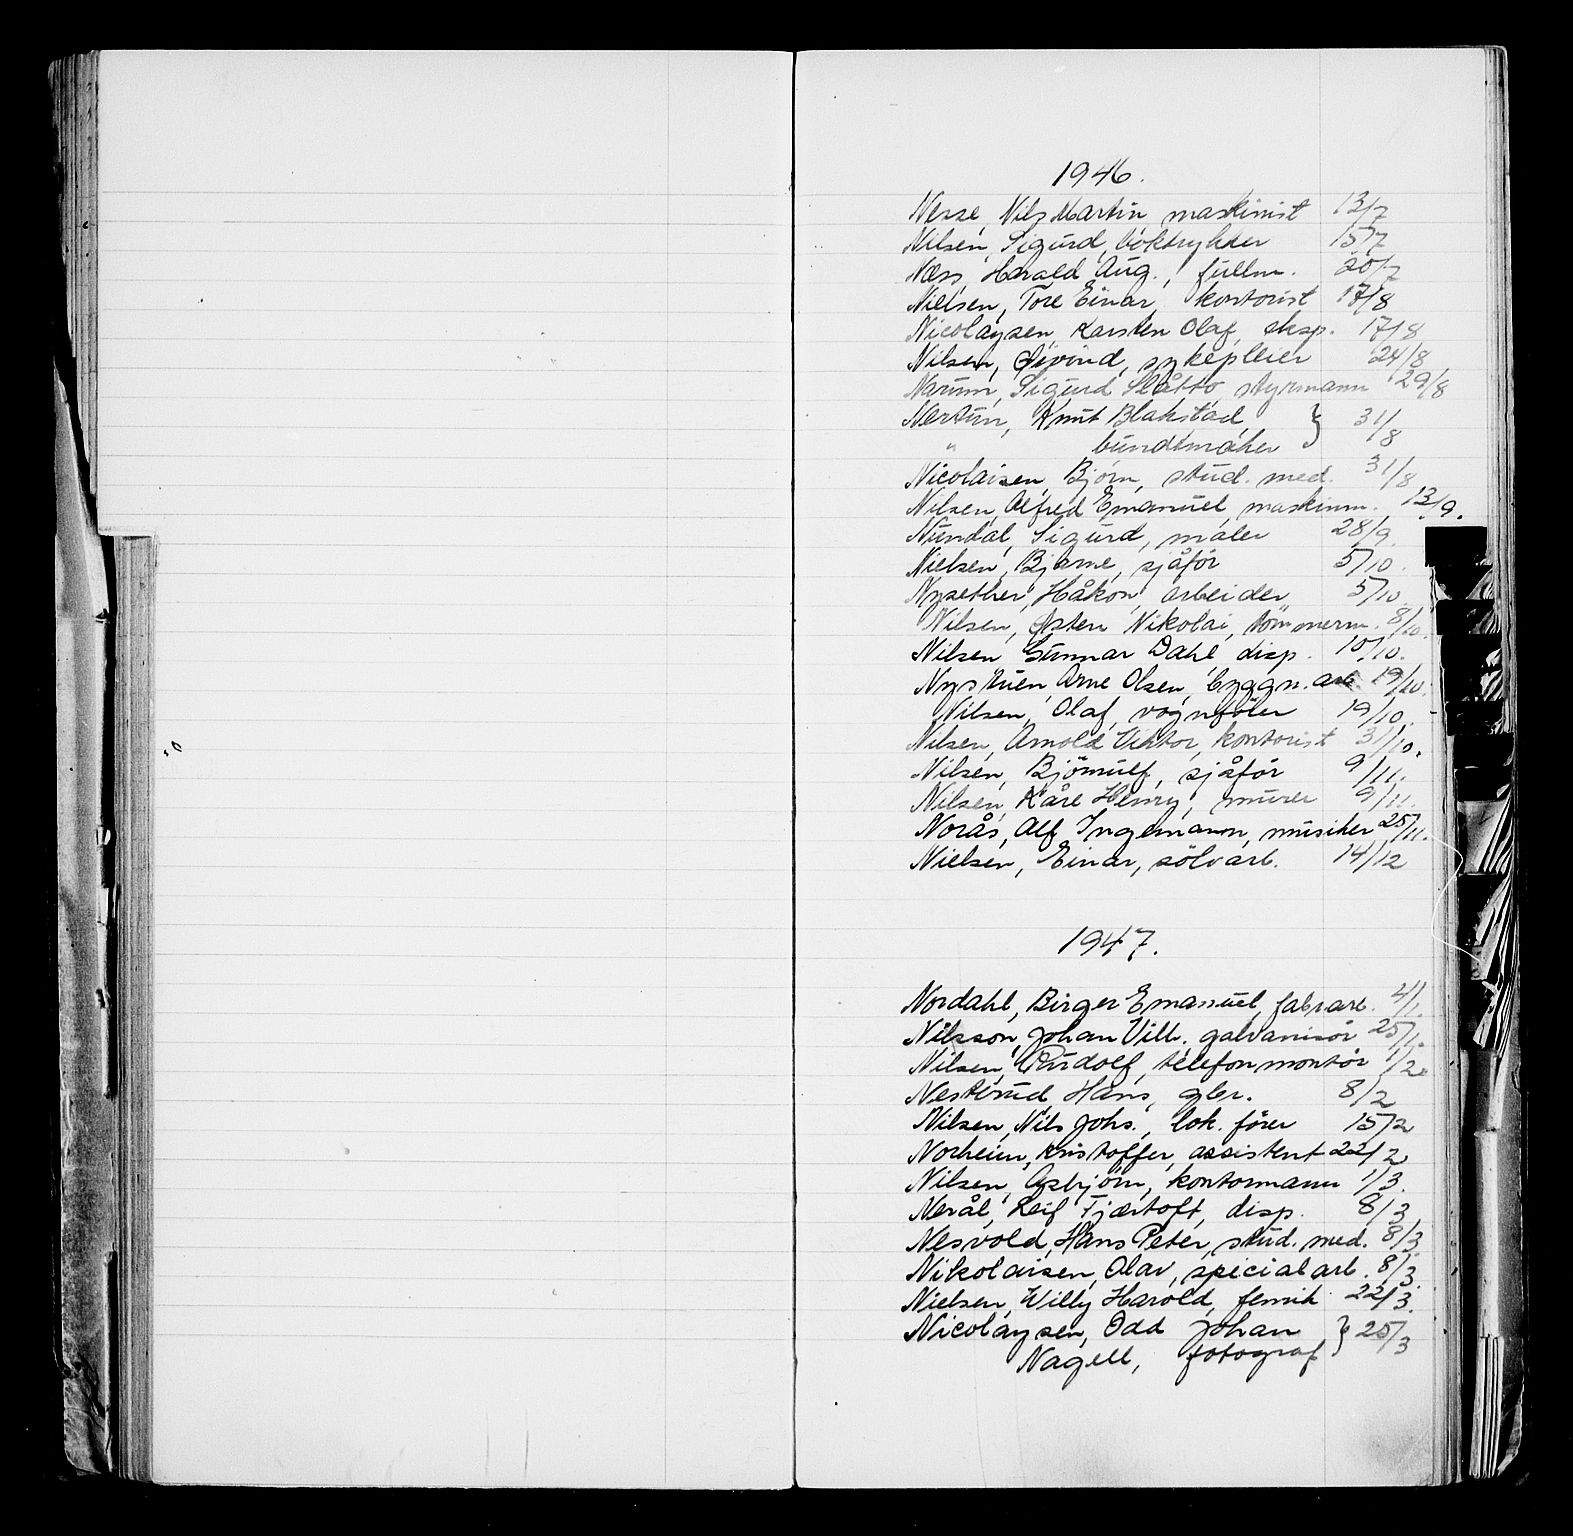 1946.
Nesse, Nils Martin, maskinist 13/7
Nilsen, Sigurd, boktrykker 15/7
Næss, Harald Aug., fullm. 20/7
Nielsen, Tore Einar, kontorist 17/8
Nicolaysen, Karsten Olaf, eksp. 17/8
Nilsen, Øivind, sykepleier 24/8
Narum, Sigurd Slåtto, styrmann 29/8
Nertun, Knut Blakstad, } 31/8
" buntmaker
Nicolaisen, Bjørn, stud. med. 31/8
Nilsen, Alfred Emanuel, maskinm. 13/9.
Nundal, Sigurd, maler 28/9.
Nielsen, Bjarne, sjåför 5/10.
Nysether, Håkon, arbeider 5/10.
Nilsen, Østen Nikolai, tömmerm. 8/10.
Nilsen, Gunnar Dahl, disp. 10/10.
Nystuen, Arne Olsen, byggn. arb. 19/10.
Nilsen, Olaf, vognförer 19/10.
Nilsen, Arnold Viktor, kontorist 31/10.
Nilsen, Björnulf, sjåför 9/11.
Nilsen, Kåre Henry, murer 9/11.
Norås, Alf Ingemann, musiker 25/11.
Nielsen, Einar, sölvarb. 14/12
1947.
Nordahl, Birger Emanuel, fabr.arb. 4/1.
Nilsson, Johan Vilh. galvanisör 25/1.
Nilsen, Rudolf, telefonmontör 1/2.
Nesterud, Hans, gbr. 8/2
Nilsen, Nils Johs., lok. förer 15/2
Norheim, Kristoffer, assistent 22/2
Nilsen, Asbjörn, kontormann 1/3.
Nerål, Leif Fjærtoft, disp. 8/3
Nesvold, Hans Peter, stud. med. 8/3.
Nikolaisen, Olav, specialarb. 8/3.
Nielsen, Willy Harold, 22/3.
Nicolaysen, Odd Johan } 25/3
Nagell, fotograf